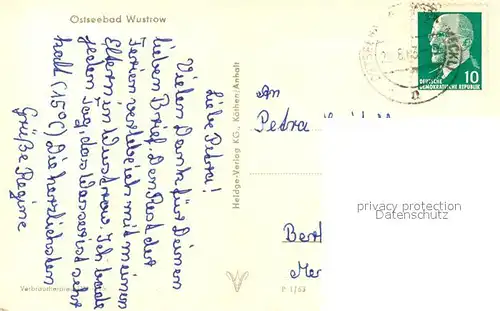 Ostseebad Wustrow
Liebe Petra!
Vielen Dank für Deinen
lieben Brief. Den Rest der
Ferien verlebe ich mit meinen
Eltern in Wustrow. Ich bade
jeden Tag, das Wasser ist sehr
kalt (15°C) Die herzlichsten
Grüße Regine
Heldge-Verlag KG., Köthen/Anhalt
P 1/63
DEUTSCHE
DEMOKRATISCHE REPUBLIK
10
An
Petra
privacy protection
Datenschutz